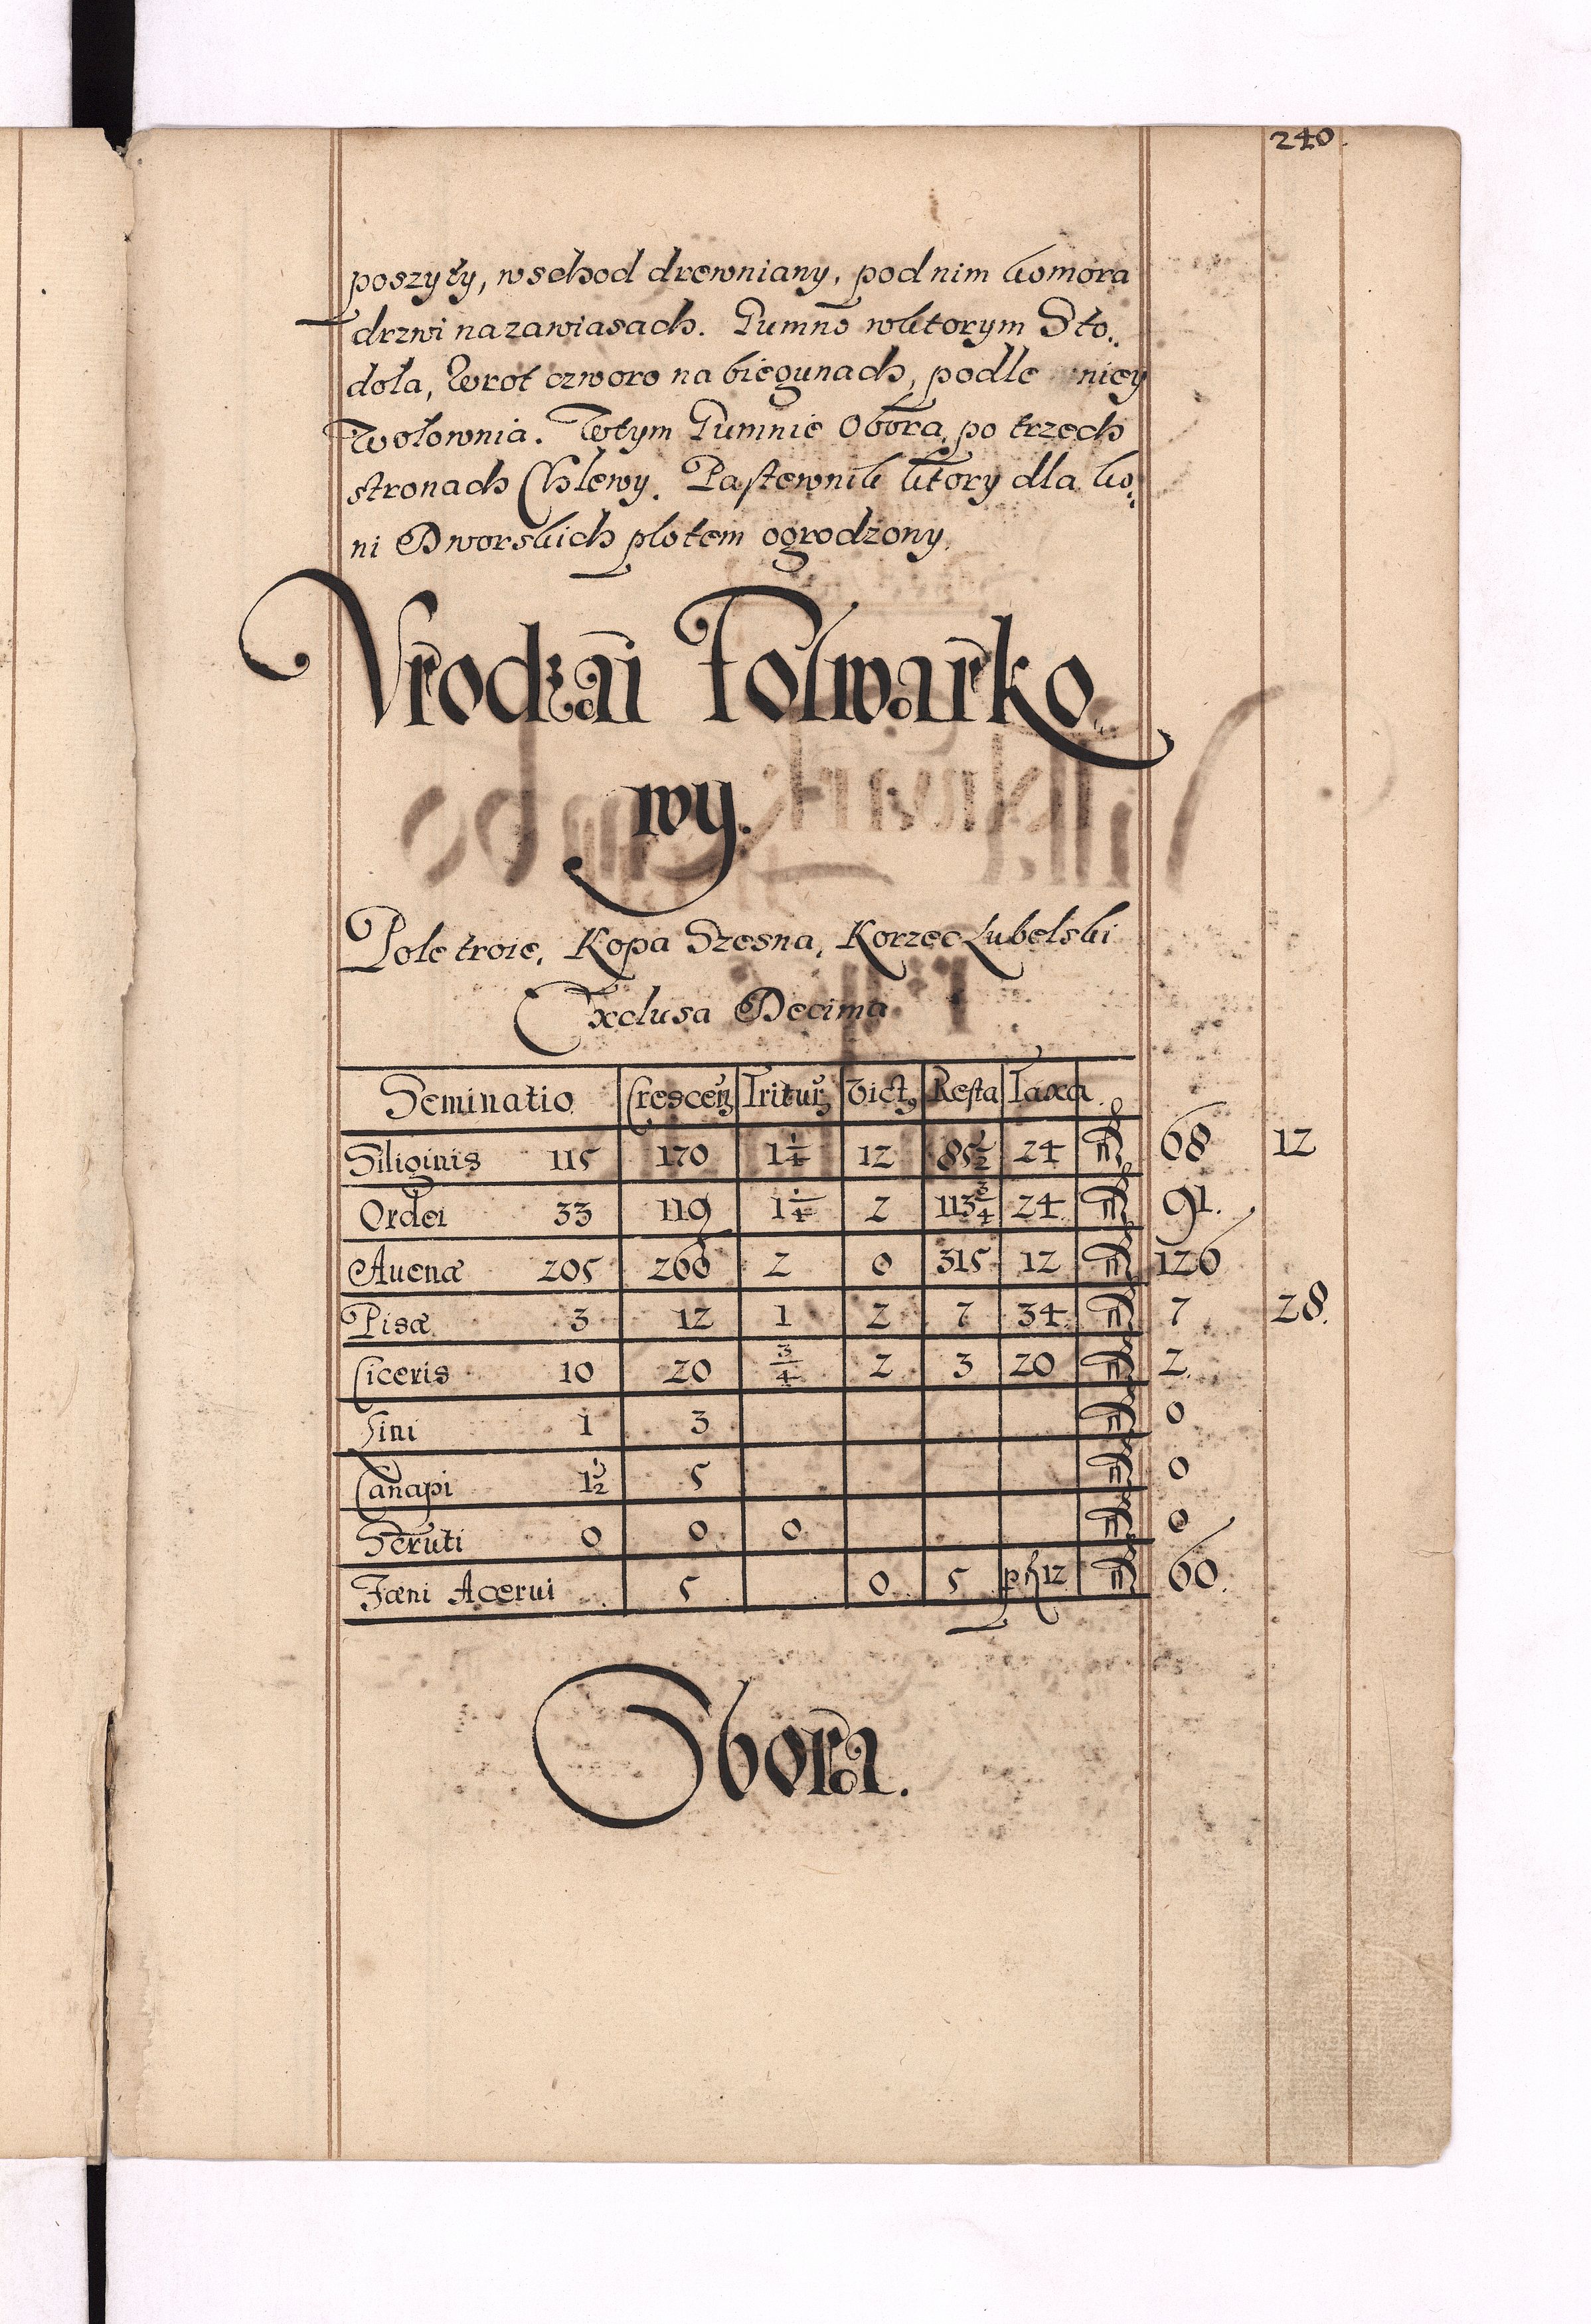 240.
poszyły, wschod drewniany, pod nim komora
drzwi na zawiasach. Gumno wktorym Sto„
doła, Wrot czworo na biegunach, podle niey
Wołownia. Wtym Gumnie Obora, po trzech
stronach Chlewy. Pastewnik ktory dla ko„
ni Dworskich płotem ogrodzony.
Vrodzai Folwarko„
wy.
Pole troie, Kopa Szesna, Korzec Lubelski
Exclusa Decima
Seminatio Crescen Tritur Vict Resta Taxa.
Siliginis 115 170 1 1/4 12 85 1/2 24 68 12
Ordei 33 119 1 1/4 2 113 3/4 24 91.
Auenæ 205 266 2 0 315 12 126
Pisæ 3 12 1 2 7 34 7 28.
Ciceris 10 20 3/4 2 3 20 2.
Lini 1 3 0
Canapi 1 1/2 5 0
0 0 0 0
Fæni Acerui 5 0 5 12 60.
Obora.